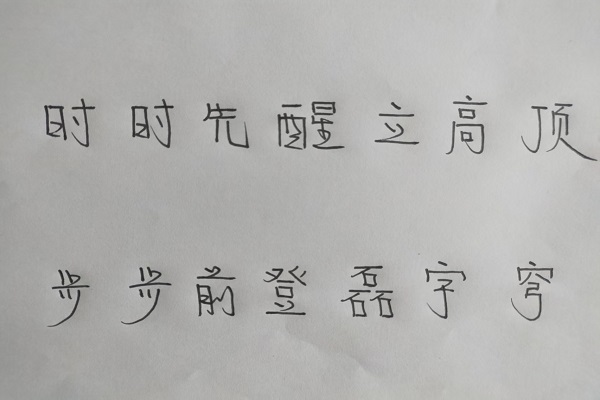 时时先醒立高顶
步步前登磊字穹